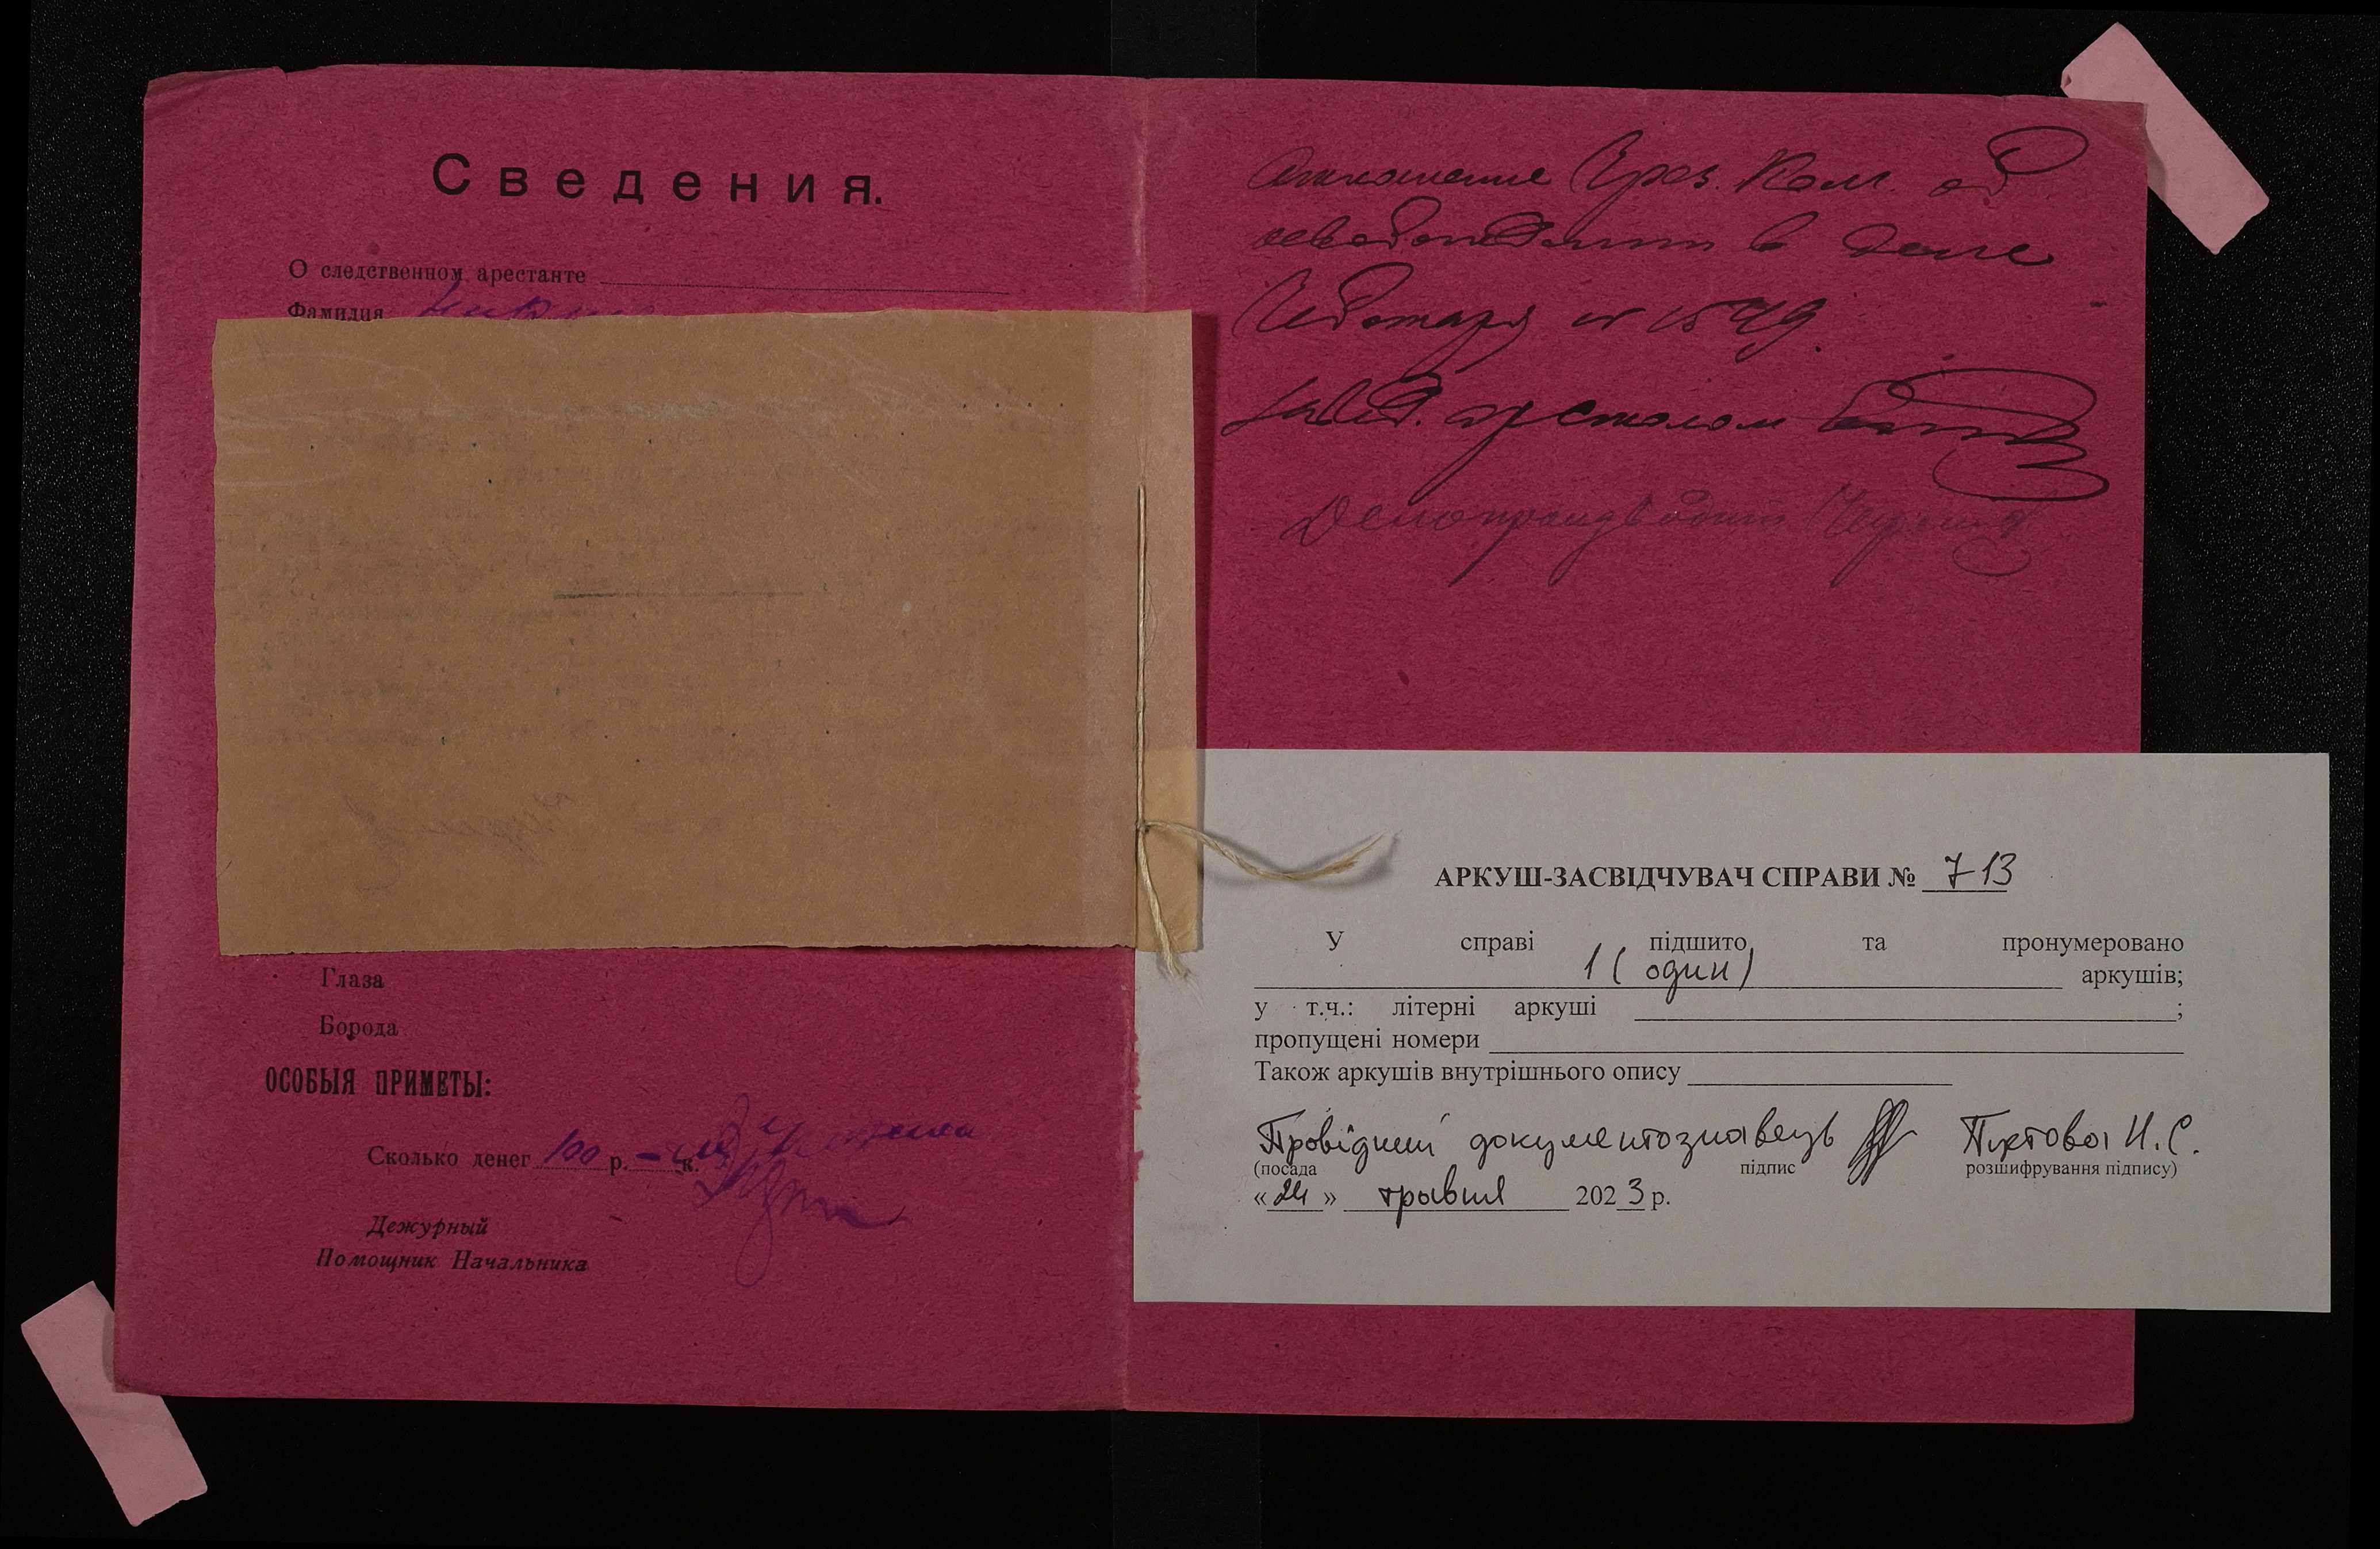 Сведения.
О следственном арестанте
Фамилия
Глаза
Борода
ОСОБЫЯ ПРИМЕТЫ:
Сколько денег 100 р. - к.
Дежурный
Помощник Начальника
Отношение Чрез. Ком. об
освобождении в деле
№ 1549.
Завед. арестолом
Делопроизводит
АРКУШ-ЗАСВІДЧУВАЧ СПРАВИ № 713
У справі підшито та пронумеровано
1 (один) аркушів;
у т.ч.: літерні аркуші ;
пропущені номери
Також аркушів внутрішнього опису
Провідний документознавець Н.С.
(посада підпис розшифрування підпису)
«24» травня 2023 р.